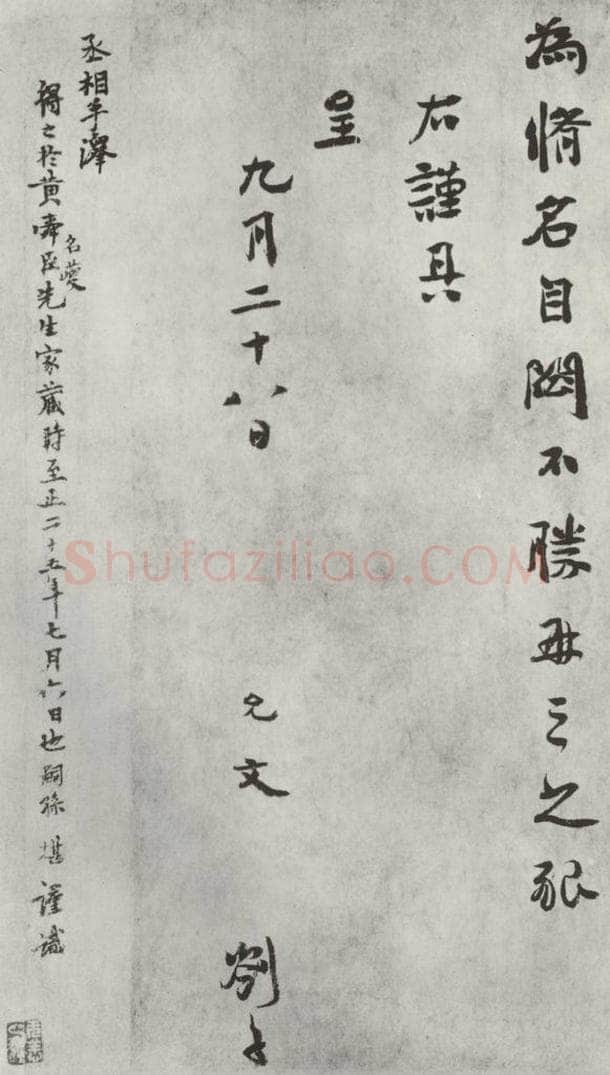 為脩名目不勝再三之懇
右謹具
呈
九月二十八日 允文 劄子
丞相手澤
得之於黃舜臣名夔先生家藏時至正二十五年七月六日也嗣孫堪謹識
Shufaziliao.COM